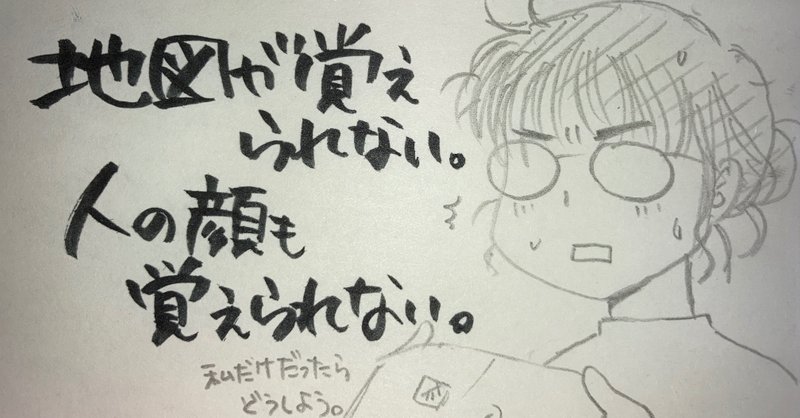 地図が覚え
られない。
人の顔も
覚えられない。
私だけだったら
どうしよう。